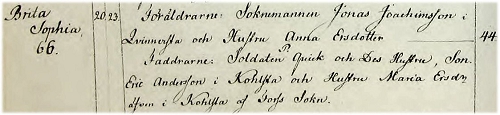 Brita 20. 23. Föräldrarne: Soknemannen Jonas Joachimsson i
Sophia, Qvinnersta och Hustru Anna Ersdotter 44
66. Faddrarne: Soldaten P Quick och Des Hustru, Son.
Eric Andersson i Kohlsta och Hustru Maria Ersd
i Kohlsta af Torss Sokn.